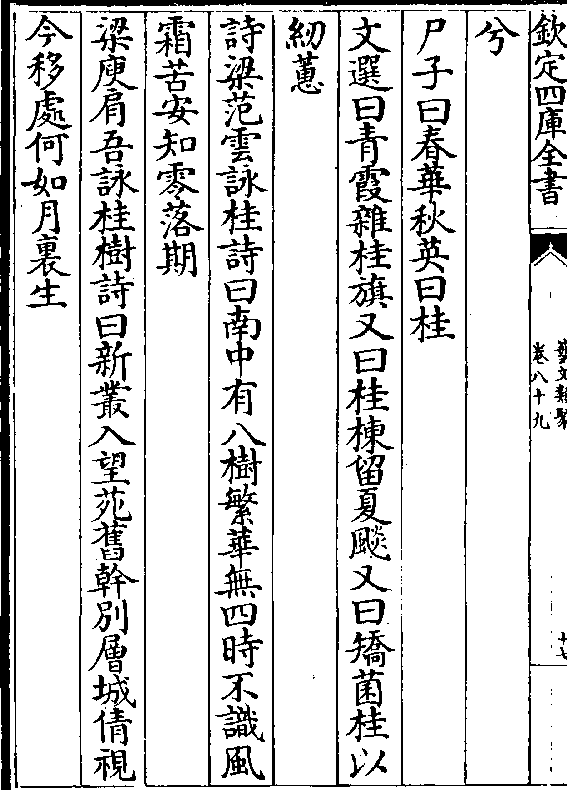 欽定四庫全書
藝文類聚
卷八十九
十七
兮
尸子曰春華秋英曰桂
文選曰青霞雜桂旗又曰桂棟留夏飈又曰矯菌桂以
紉蕙
詩梁范雲詠桂詩曰南中有八樹繁華無四時不識風
霜苦安知零落期
梁庾肩吾詠桂樹詩曰新叢入望苑舊幹別層城倩視
今移處何如月裏生